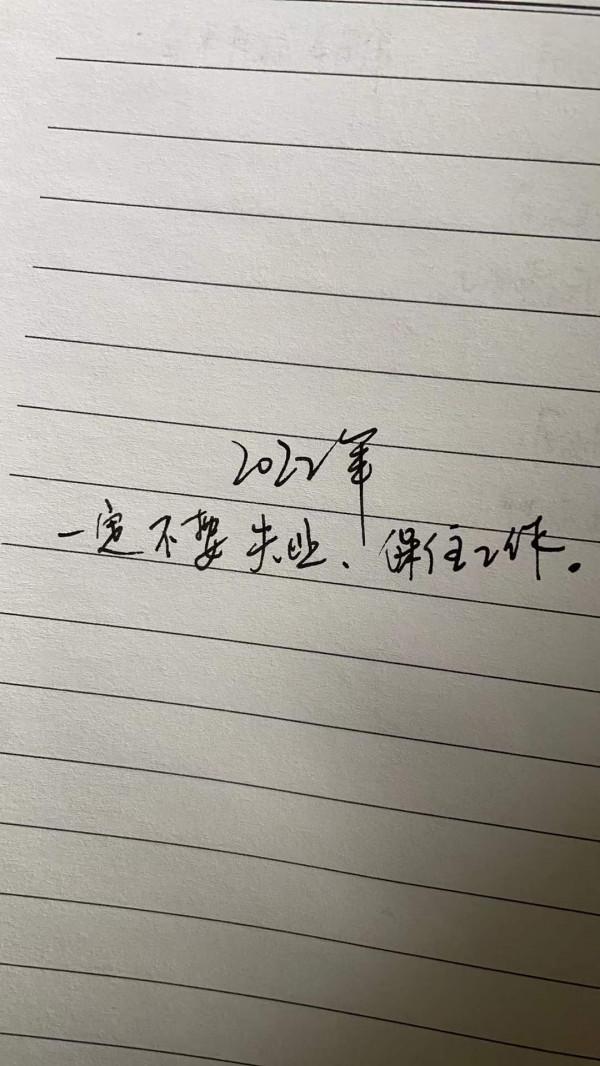 2022年
一定不要失业、保住工作。